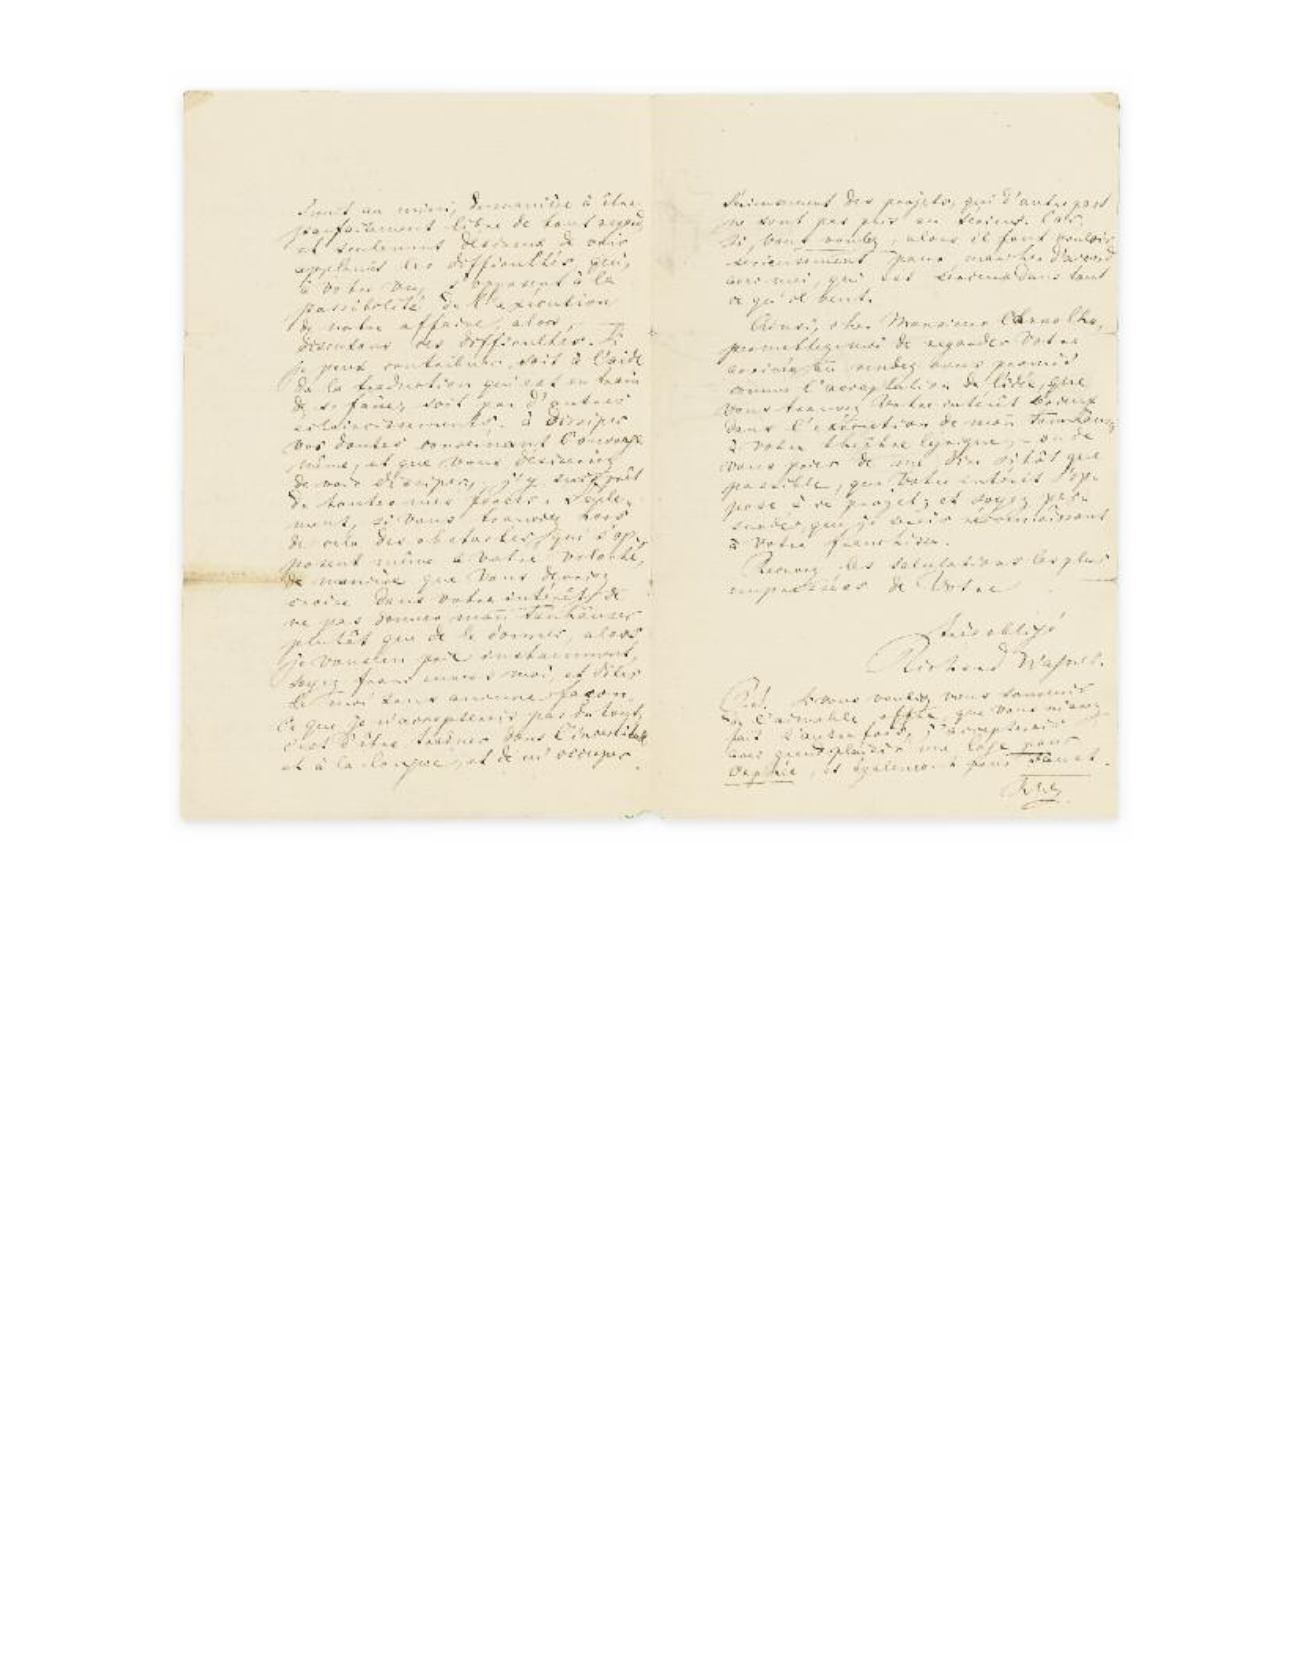 au mien, de manière à être
parfaitement libre de tout
et seulement desireux de voir
applanir les difficultés, qui,
à votre vue, s'opposent à la
possibilité de l'exécution
de notre affaire, alors,
discutons ces difficultés. Si
je peux contribuer, soit à l'aide
de la traduction qui est en train
de se faire, soit par d'autres
éclaircissements, à dissiper
vos doutes concernant l'ouvrage
même, et que vous desireriez
de voir dissiper, j'y suis prêt
de toutes mes forces. Seule-
ment, si vous trouvez hors
de cela des obstacles, qui s'op-
posent même à votre volonté,
de manière que vous devriez
croire dans votre intérêt, de
ne pas donner mon Tanhäuser
plutôt que de le donner, alors
je vous en prie instamment,
soyez franc envers moi, et dites
le moi sans aucune façon.
Ce que je n'accepterais pas du tout,
c'est d'être trainer dans l'incertitude
et à la longue, et de m'occuper
des projets, qui d'autre part
ne sont pas pris au serieux. Car,
si, vous voulez, alors il faut vouloir
serieusement pour marcher d'accord
avec moi, qui est serieux dans tout
ce qu'il veut.
Ainsi, cher Monsieur Carvalho,
promettez-moi de regarder Votre
arrivée au rendez vous promis
comme l'acceptation de l'idée, que
vous trouvez Votre intérêt
dans l'exécution de mon Tannhäuser
à votre théâtre lyrique, – ou de
vous prier de me dire sitôt que
possible, que Votre intérêt s'op-
pose à ce projet; et soyez per-
suadé, que je serais réconnaissant
à Votre franchise.
Recevez les salutations les plus
empressées de Votre
très obligé
Richard Wagner.
Si vous vouliez vous souvenir
de l'aimable offre, que vous m'avez
fait l'autre fois, j'accepterais
avec grand plaisir une loge pour
Orphée, et également pour Faust.